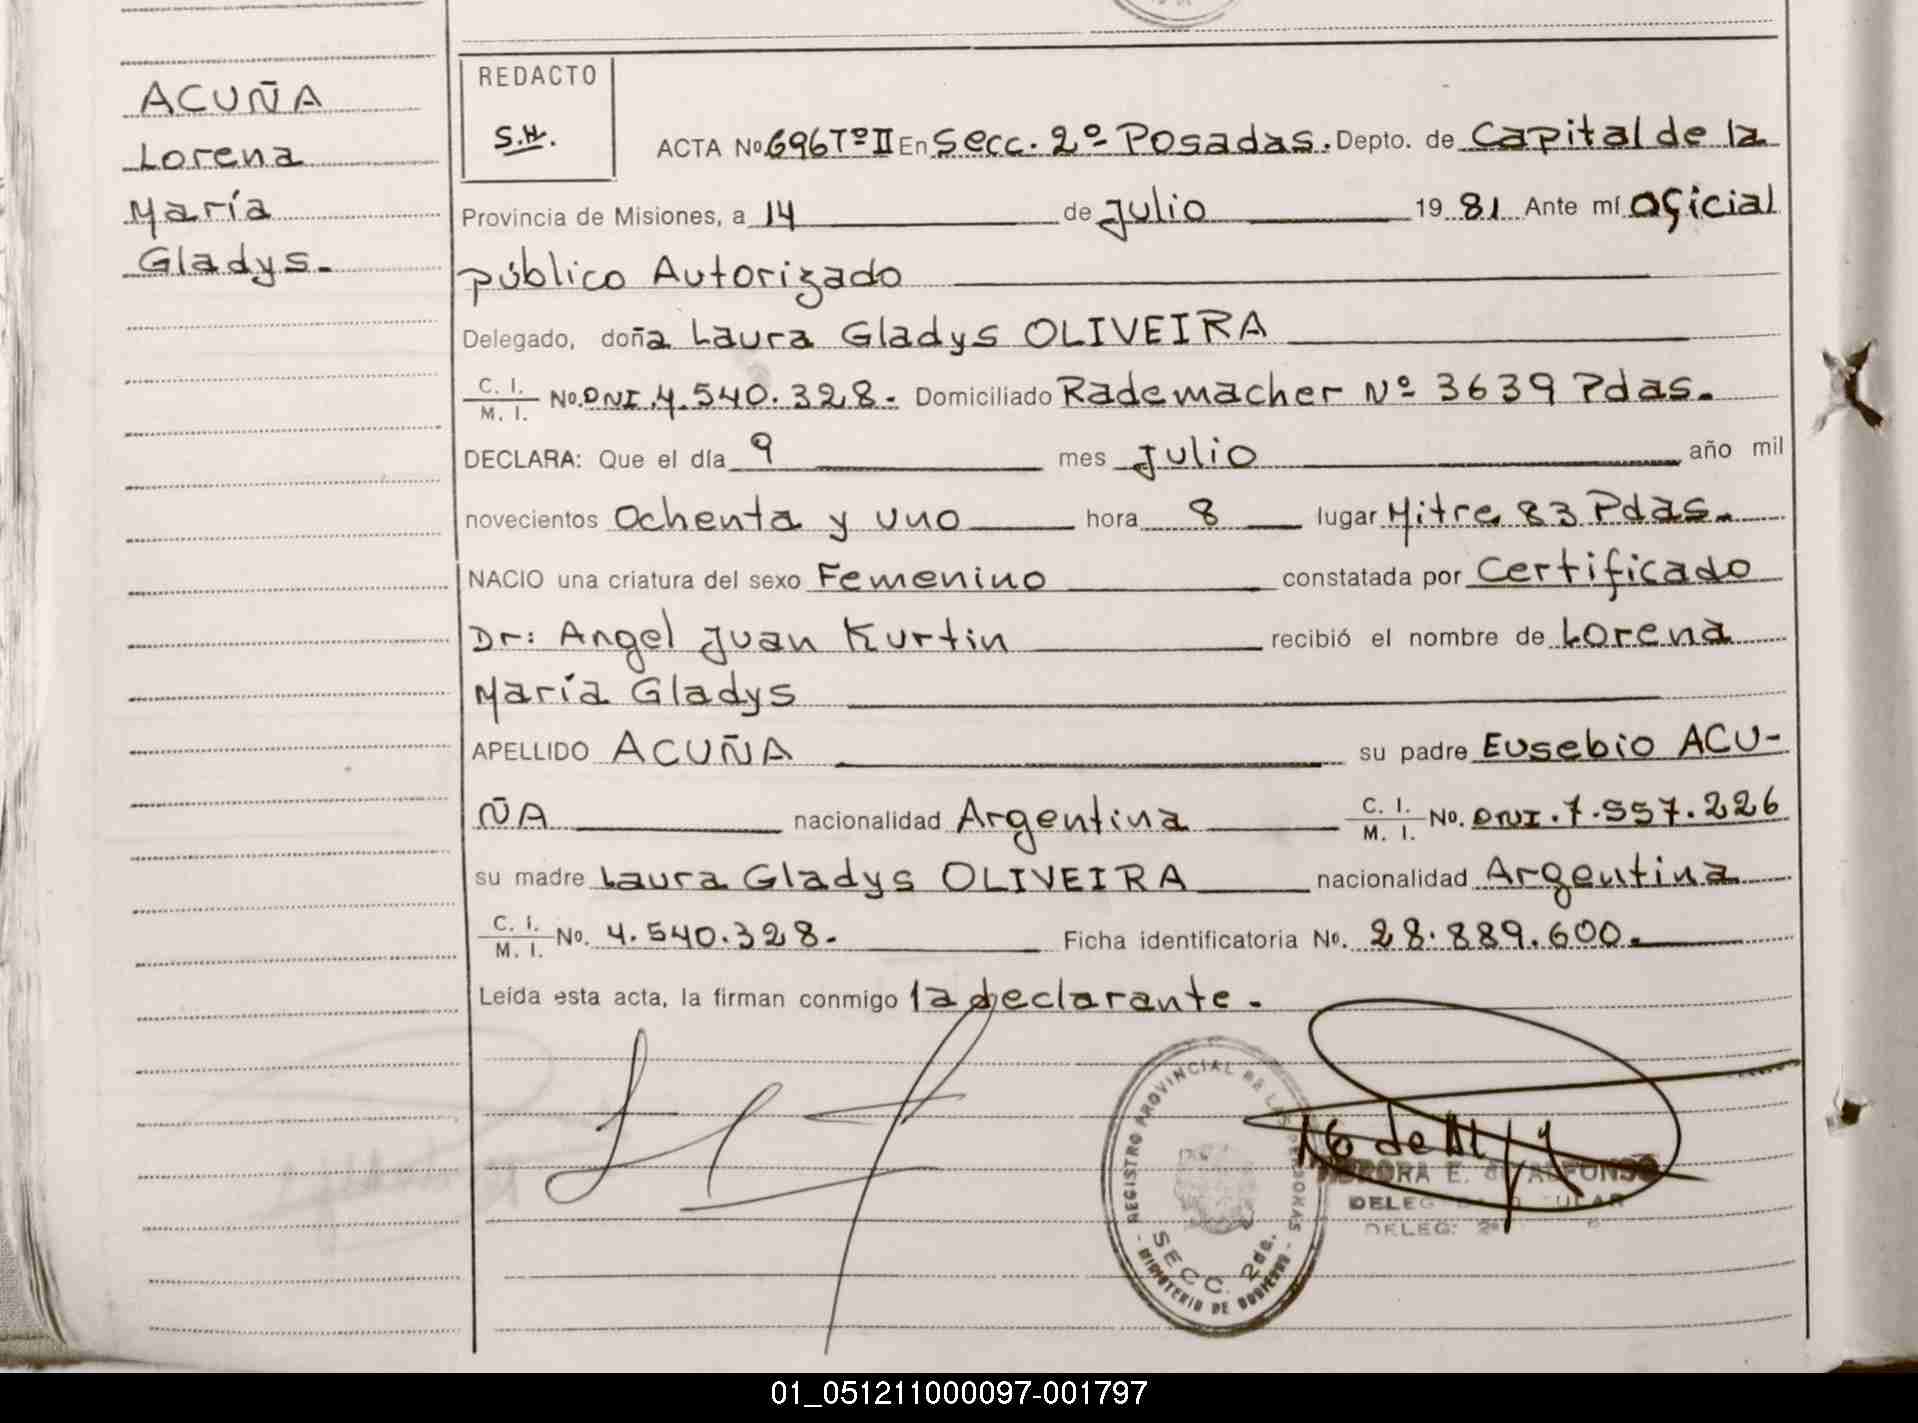 ACUÑA
Lorena
María
Gladys.
REDACTO
S.H.
ACTA No. 696 Tº II En Secc. 2º Posadas. Depto. de Capital de la
Provincia de Misiones, a 14 de Julio 19 81 Ante mí oficial
público Autorizado
Delegado, doña Laura Gladys OLIVEIRA
C. I.
M. I. No. DNI. 4.540.328. Domiciliado Rademacher Nº 3639 Pdas.
DECLARA: Que el día 9 mes Julio año mil
novecientos Ochenta y uno hora 8 lugar Mitre 83 Pdas.
NACIO una criatura del sexo Femenino constatada por Certificado
Dr: Angel Juan Kurtin recibió el nombre de Lorena
María Gladys
APELLIDO ACUÑA su padre Eusebio ACU-
ÑA nacionalidad Argentina C. I. M. I. No. DNI. 7.557.226
su madre Laura Gladys OLIVEIRA nacionalidad Argentina
C. I.
M. I. No. 4.540.328. Ficha identificatoria No. 28.889.600.
Leída esta acta, la firman conmigo la declarante.
REGISTRO PROVINCIAL DE LAS PERSONAS
SECC. 2da.
- MINISTERIO DE GOBIERNO -
E. de ALFONSO
DELEG. 2ª
01_051211000097-001797